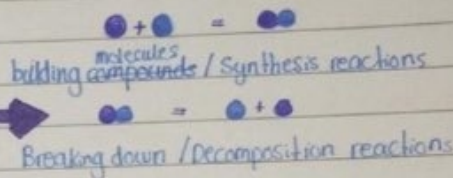 + =
molecules
building compounds / Synthesis reactions
= +
Breaking down / Decomposition reactions